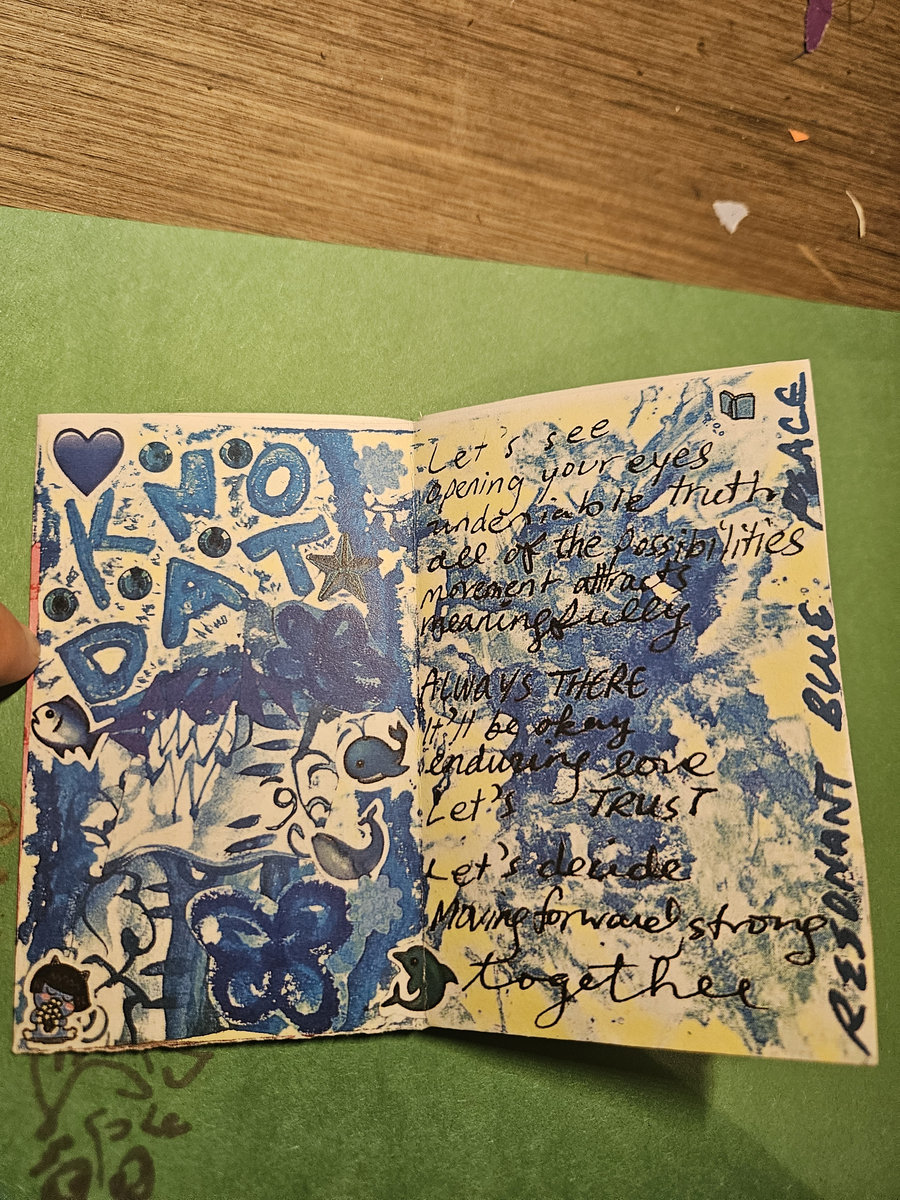 KNO
DAT
Let's see
opening your eyes
undeniable truth
all of the possibilities
movement attracts
meaningfully
ALWAYS THERE
It'll be okay
enduring love
Let's TRUST
Let's decide
Moving forward, strong
together
RESONANT BLUE PEACE